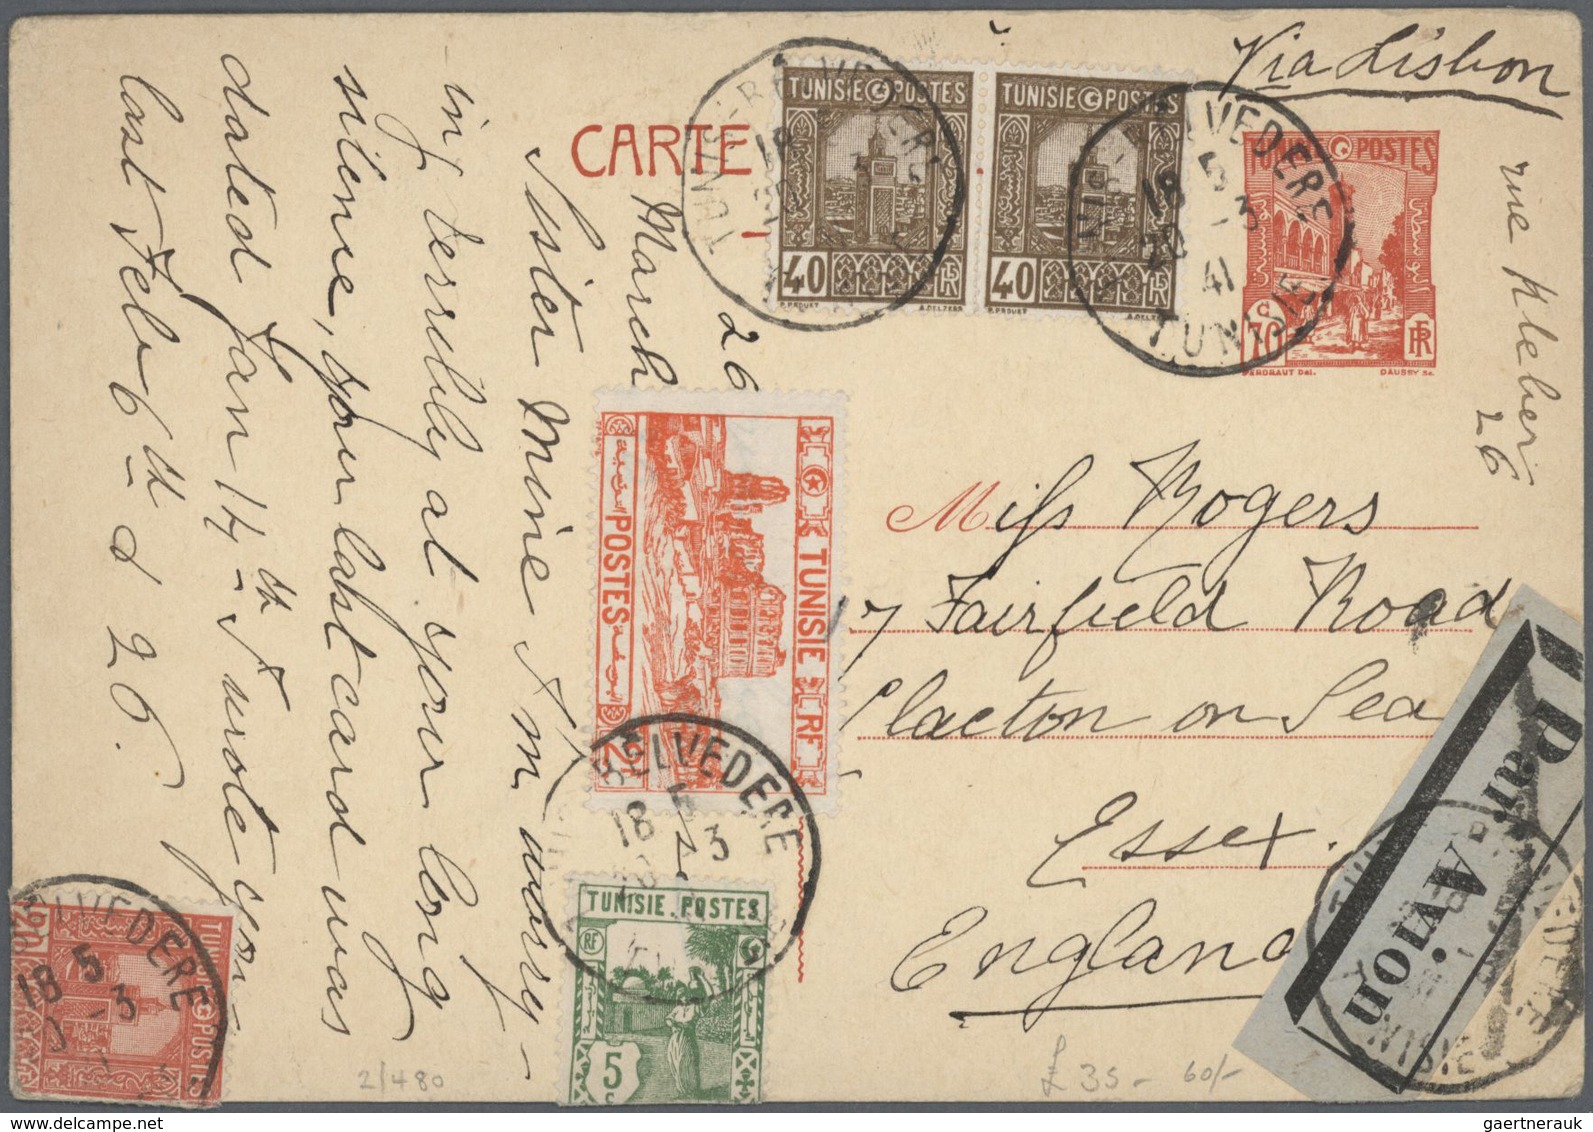 Via Lisbon
CARTE
TUNISIE POSTES
40
P. PROUET
A. DELZERS
TUNISIE POSTES
40
P. PROUET
A. DELZERS
POSTES
70
c
RF
DAUSSY Sc.
TUNIS-BELVEDERE
18 5
20 -3
41
TUNISIE
rue Kleber
26
Miss Rogers
7 Fairfield Road
Clacton on Sea
Essex.
England
Par Avion
26
March
Sister Mine I'm worry-
ing terribly at your long
silence, your last card was
dated Jan 14th. I wrote you
last Feb 6th & 26.
TUNISIE RF
POSTES
2F
BELVEDERE
18 5
20 -3
TUNISIE POSTES
RF
5
c
BELVEDERE
18 5
-3
TUNISIE
POSTES
2/480
£ 35-
60/-
gaertnerauk